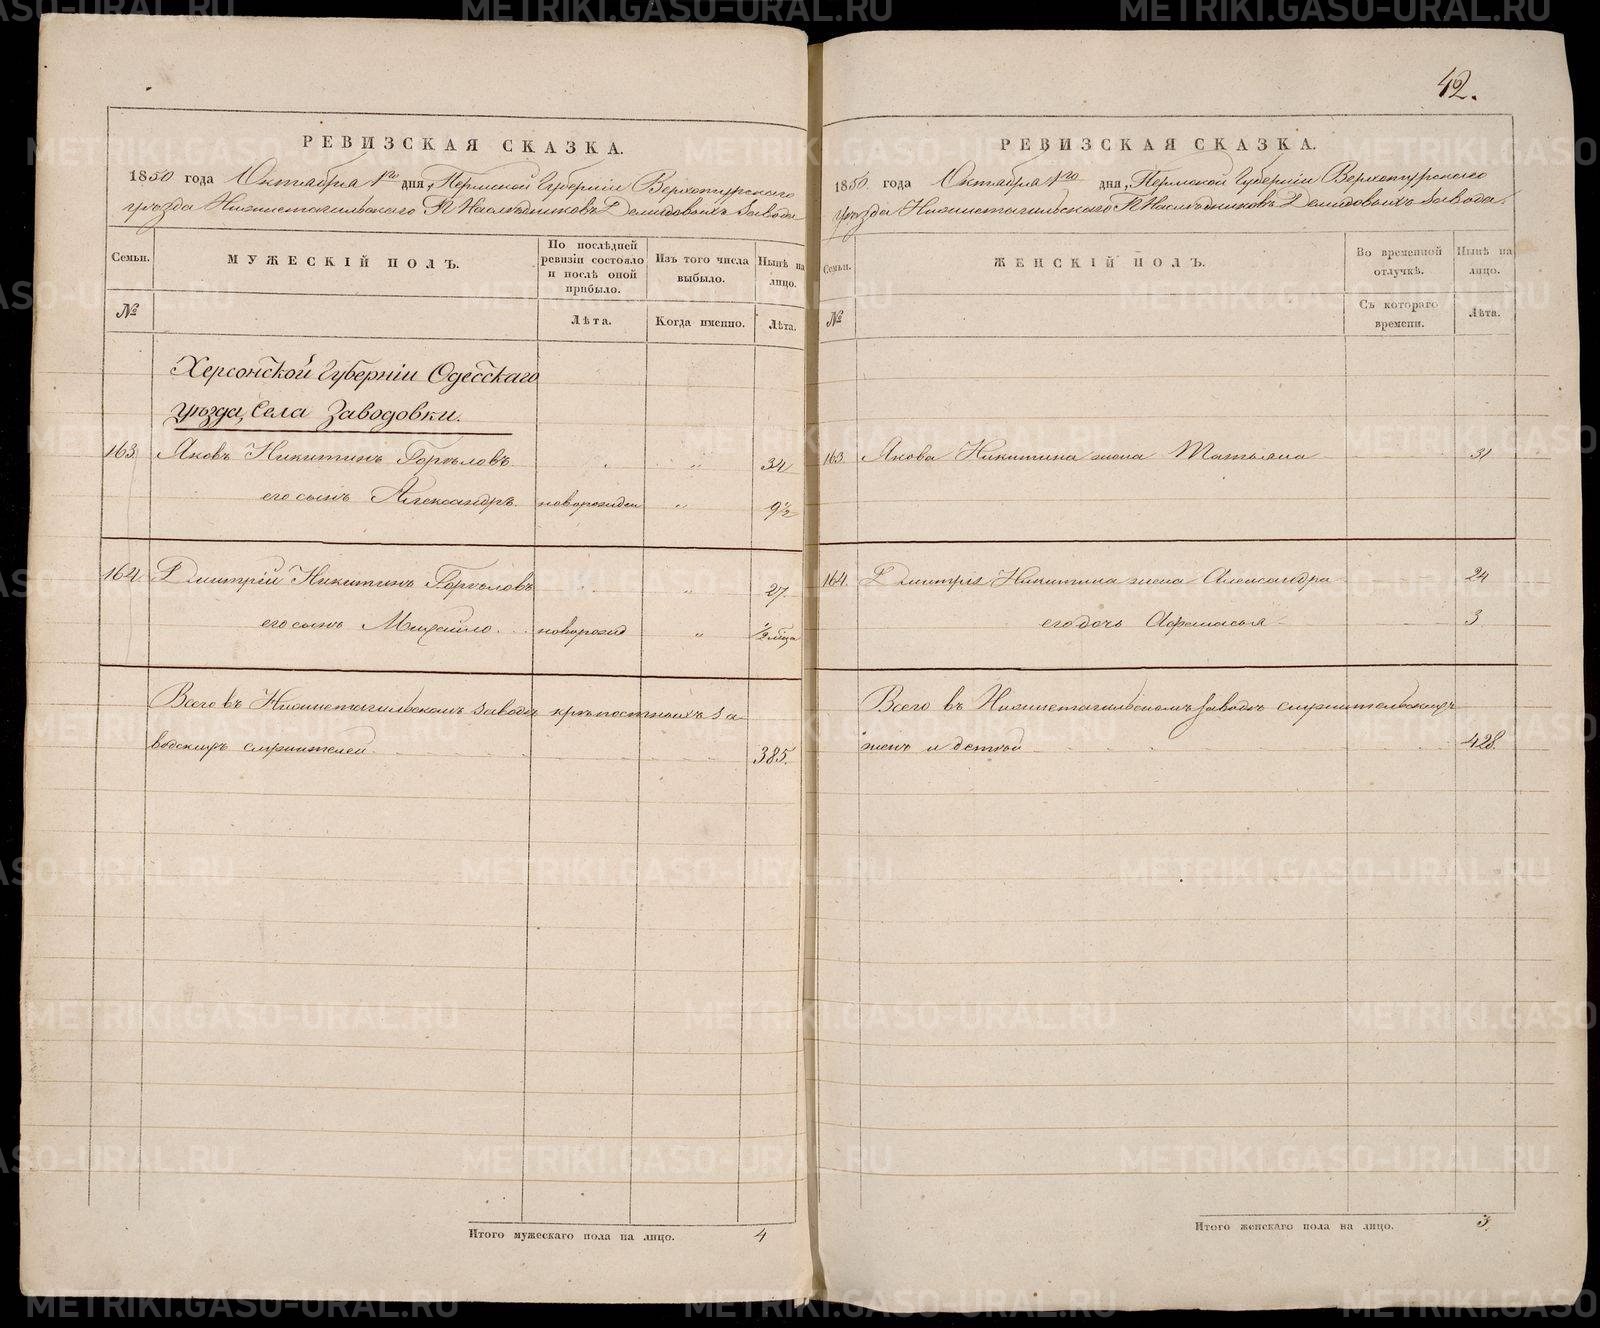 42.
РЕВИЗСКАЯ СКАЗКА.
1850 года Октября 1го дня, Пермской Губерніи Верхотурскаго
уѣзда Нижнетагильскаго Гг. Наслѣдниковъ Демидовыхъ завода
Семьи.
МУЖЕСКІЙ ПОЛЪ.
По послѣдней ревизіи состояло и послѣ оной прибыло.
Изъ того числа выбыло.
Нынѣ на лицо.
№
Лѣта.
Когда именно.
Лѣта.
Херсонской Губерніи Одесскаго
уѣзда, Села Заводовки.
163. Яковъ Никитинъ " 34
его сынъ Александръ новорожден " 9½
164. Дмитрій Никитинъ " 27.
его сынъ Михайло новорожд " ½ мѣца
Всего въ Нижнетагильскомъ заводѣ крѣпостныхъ за
водскихъ служителей 385.
Итого мужескаго пола на лицо. 4
РЕВИЗСКАЯ СКАЗКА.
1850 года Октября 1го дня, Пермской Губерніи Верхотурскаго
уѣзда Нижнетагильскаго Гг. Наслѣдниковъ Демидовыхъ завода.
Семьи.
ЖЕНСКІЙ ПОЛЪ.
Во временной отлучкѣ.
Нынѣ на лицо.
№
Съ котораго времени.
Лѣта.
163. Якова Никитина жена Татьяна 31
164. Дмитрія Никитина жена Александра 24
его дочь Афанасья 3
Всего въ Нижнетагильскомъ заводѣ служительскихъ
женъ и детей 428.
Итого женскаго пола на лицо. 3.
METRIKI.GASO-URAL.RU